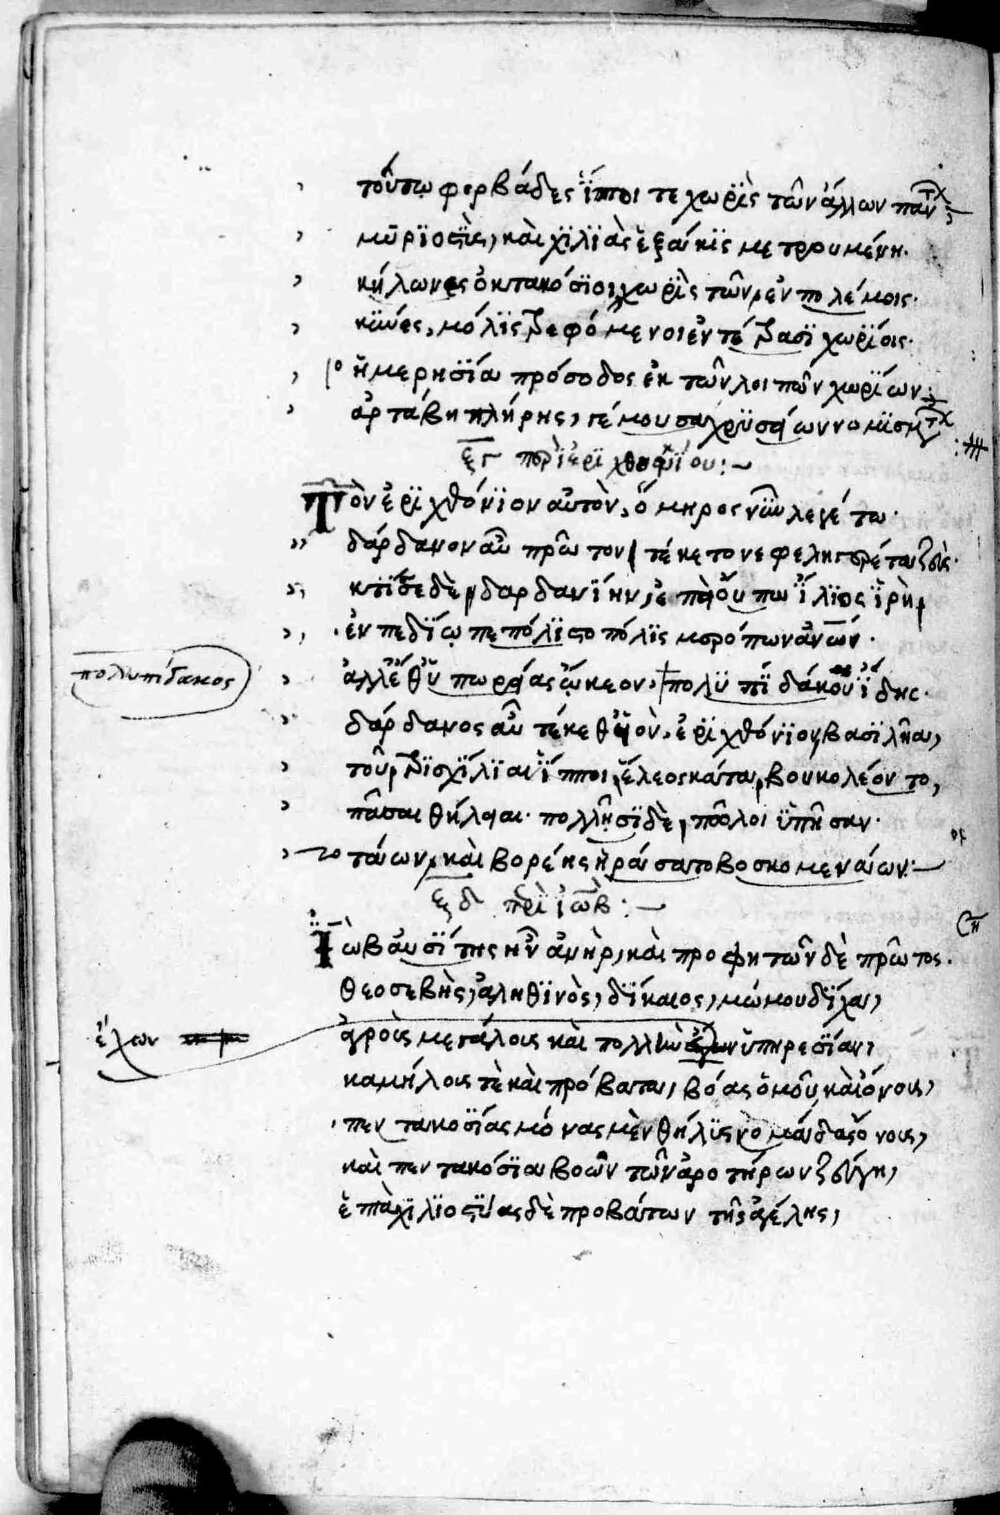 τούτω φορβάδες ἵπποι τε χωρὶς τῶν ἄλλων πάντων
μυριοστὺς, καὶ χιλιὰς ἑξάκις μετρουμένη.
κήλωνες ὀκτακόσιοι χωρὶς τῶν ἐν πολέμοις.
κύνες, μόλις τρεφόμενοι ἐν τέτρασι χωρίοις.
ἡμερησία πρόσοδος ἐκ τῶν λοιπῶν χωρίων
ἀρτάβη πλήρης, γέμουσα χρυσέων νομισμάτων
ξγ περὶ ἐριχθονίου:~
Τὸν ἐριχθόνιον αὐτὸν, ὅμηρος νῦν λεγέτω.
δάρδανον αὖ πρῶτον τέκετο νεφεληγερέτα ζεὺς.
κτίσσε δὲ δαρδανίην, ἐπεὶ οὔπω ἴλιος ἱρὴ
ἐν πεδίῳ πεπόλιστο πόλις μερόπων ἀνθρώπων.
πολυπίδακος
ἀλλ' ἔθ' ὑπωρείας ᾤκεον, πολυπιδάκου ἴδης.
δάρδανος αὖ τέκεθ' υἱὸν, ἐριχθόνιον βασιλῆα,
τοῦ τρισχίλιαι ἵπποι ἕλος κάτα βουκολέοντο,
πᾶσαι θήλειαι. πολλῇσι δὲ πῶλοι ὑπῆσαν.
τάων καὶ βορέης ἠράσατο βοσκομενάων:
ξδ περὶ ἰώβ:~
Ἰὼβ αὐσίτης ἦν ἀνὴρ, καὶ προφητῶν δὲ πρῶτος.
θεοσεβὴς, ἀληθινὸς, δίκαιος, μώμου δίχα,
ἔχων
ἀγροῖς μεγάλοις καὶ πολλὴν ἔχων ὑπηρεσίαν,
καμήλους τὲ καὶ πρόβατα, βόας ὁμοῦ, καὶ ὄνους,
πεντακοσίας μόνας μὲν θηλείας νομάδας ὄνους,
καὶ πεντακόσια βοῶν τῶν ἀροτήρων ζεύγη,
ἑπταχιλιοστύας δὲ προβάτων τῆς ἀγέλης,